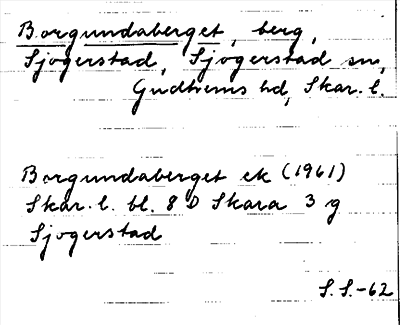 Borgundaberget, berg,
Sjogerstad, Sjogerstad sn,
Gudhems hd, Skar. l.
Borgundaberget ek (1961)
Skar. l. bl. 8 D Skara 3 g
Sjogerstad
S. S.-62